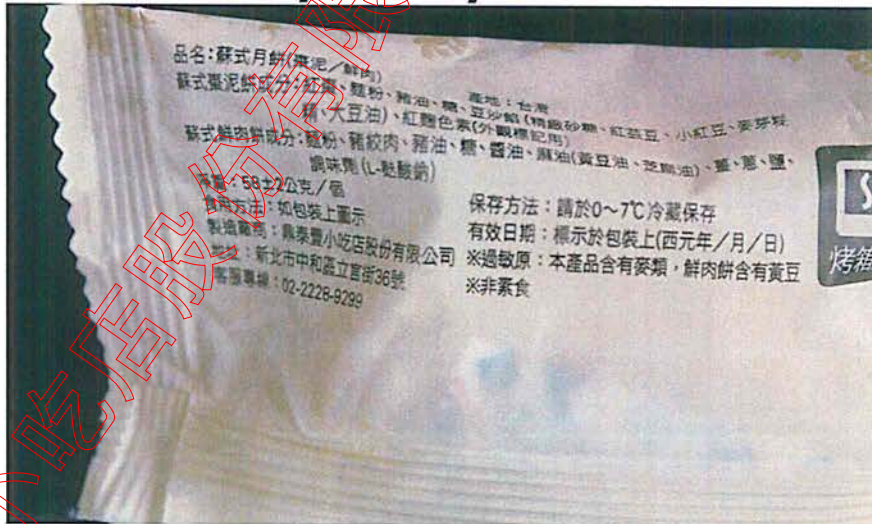 品名:蘇式月餅(棗泥/鮮肉)
產地:台灣
蘇式棗泥餅成分:紅棗、麵粉、豬油、糖、豆沙餡(精緻砂糖、紅芸豆、小紅豆、麥芽糊
精、大豆油)、紅麴色素(外觀標記用)
蘇式鮮肉餅成分:麵粉、豬絞肉、豬油、糖、醬油、麻油(黃豆油、芝麻油)、薑、蔥、鹽、
調味劑(L-麩酸鈉)
淨重:58±2公克/個
食用方法:如包裝上圖示
製造廠商:鼎泰豐小吃店股份有限公司
地址:新北市中和區立言街36號
客服專線:02-2228-9299
保存方法:請於0～7℃冷藏保存
有效日期:標示於包裝上(西元年/月/日)
※過敏原:本產品含有麥類,鮮肉餅含有黃豆
※非素食
烤箱
小吃店股份有限